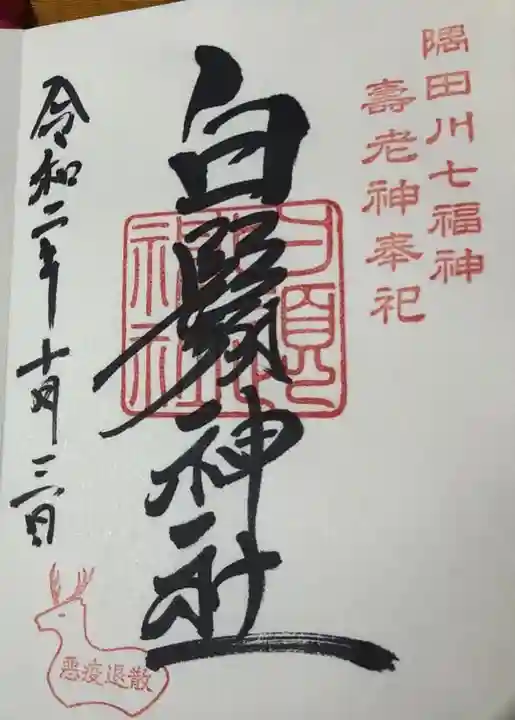 隅田川七福神
壽老神奉祀
白鬚神社
令和二年十月三日
悪疫退散